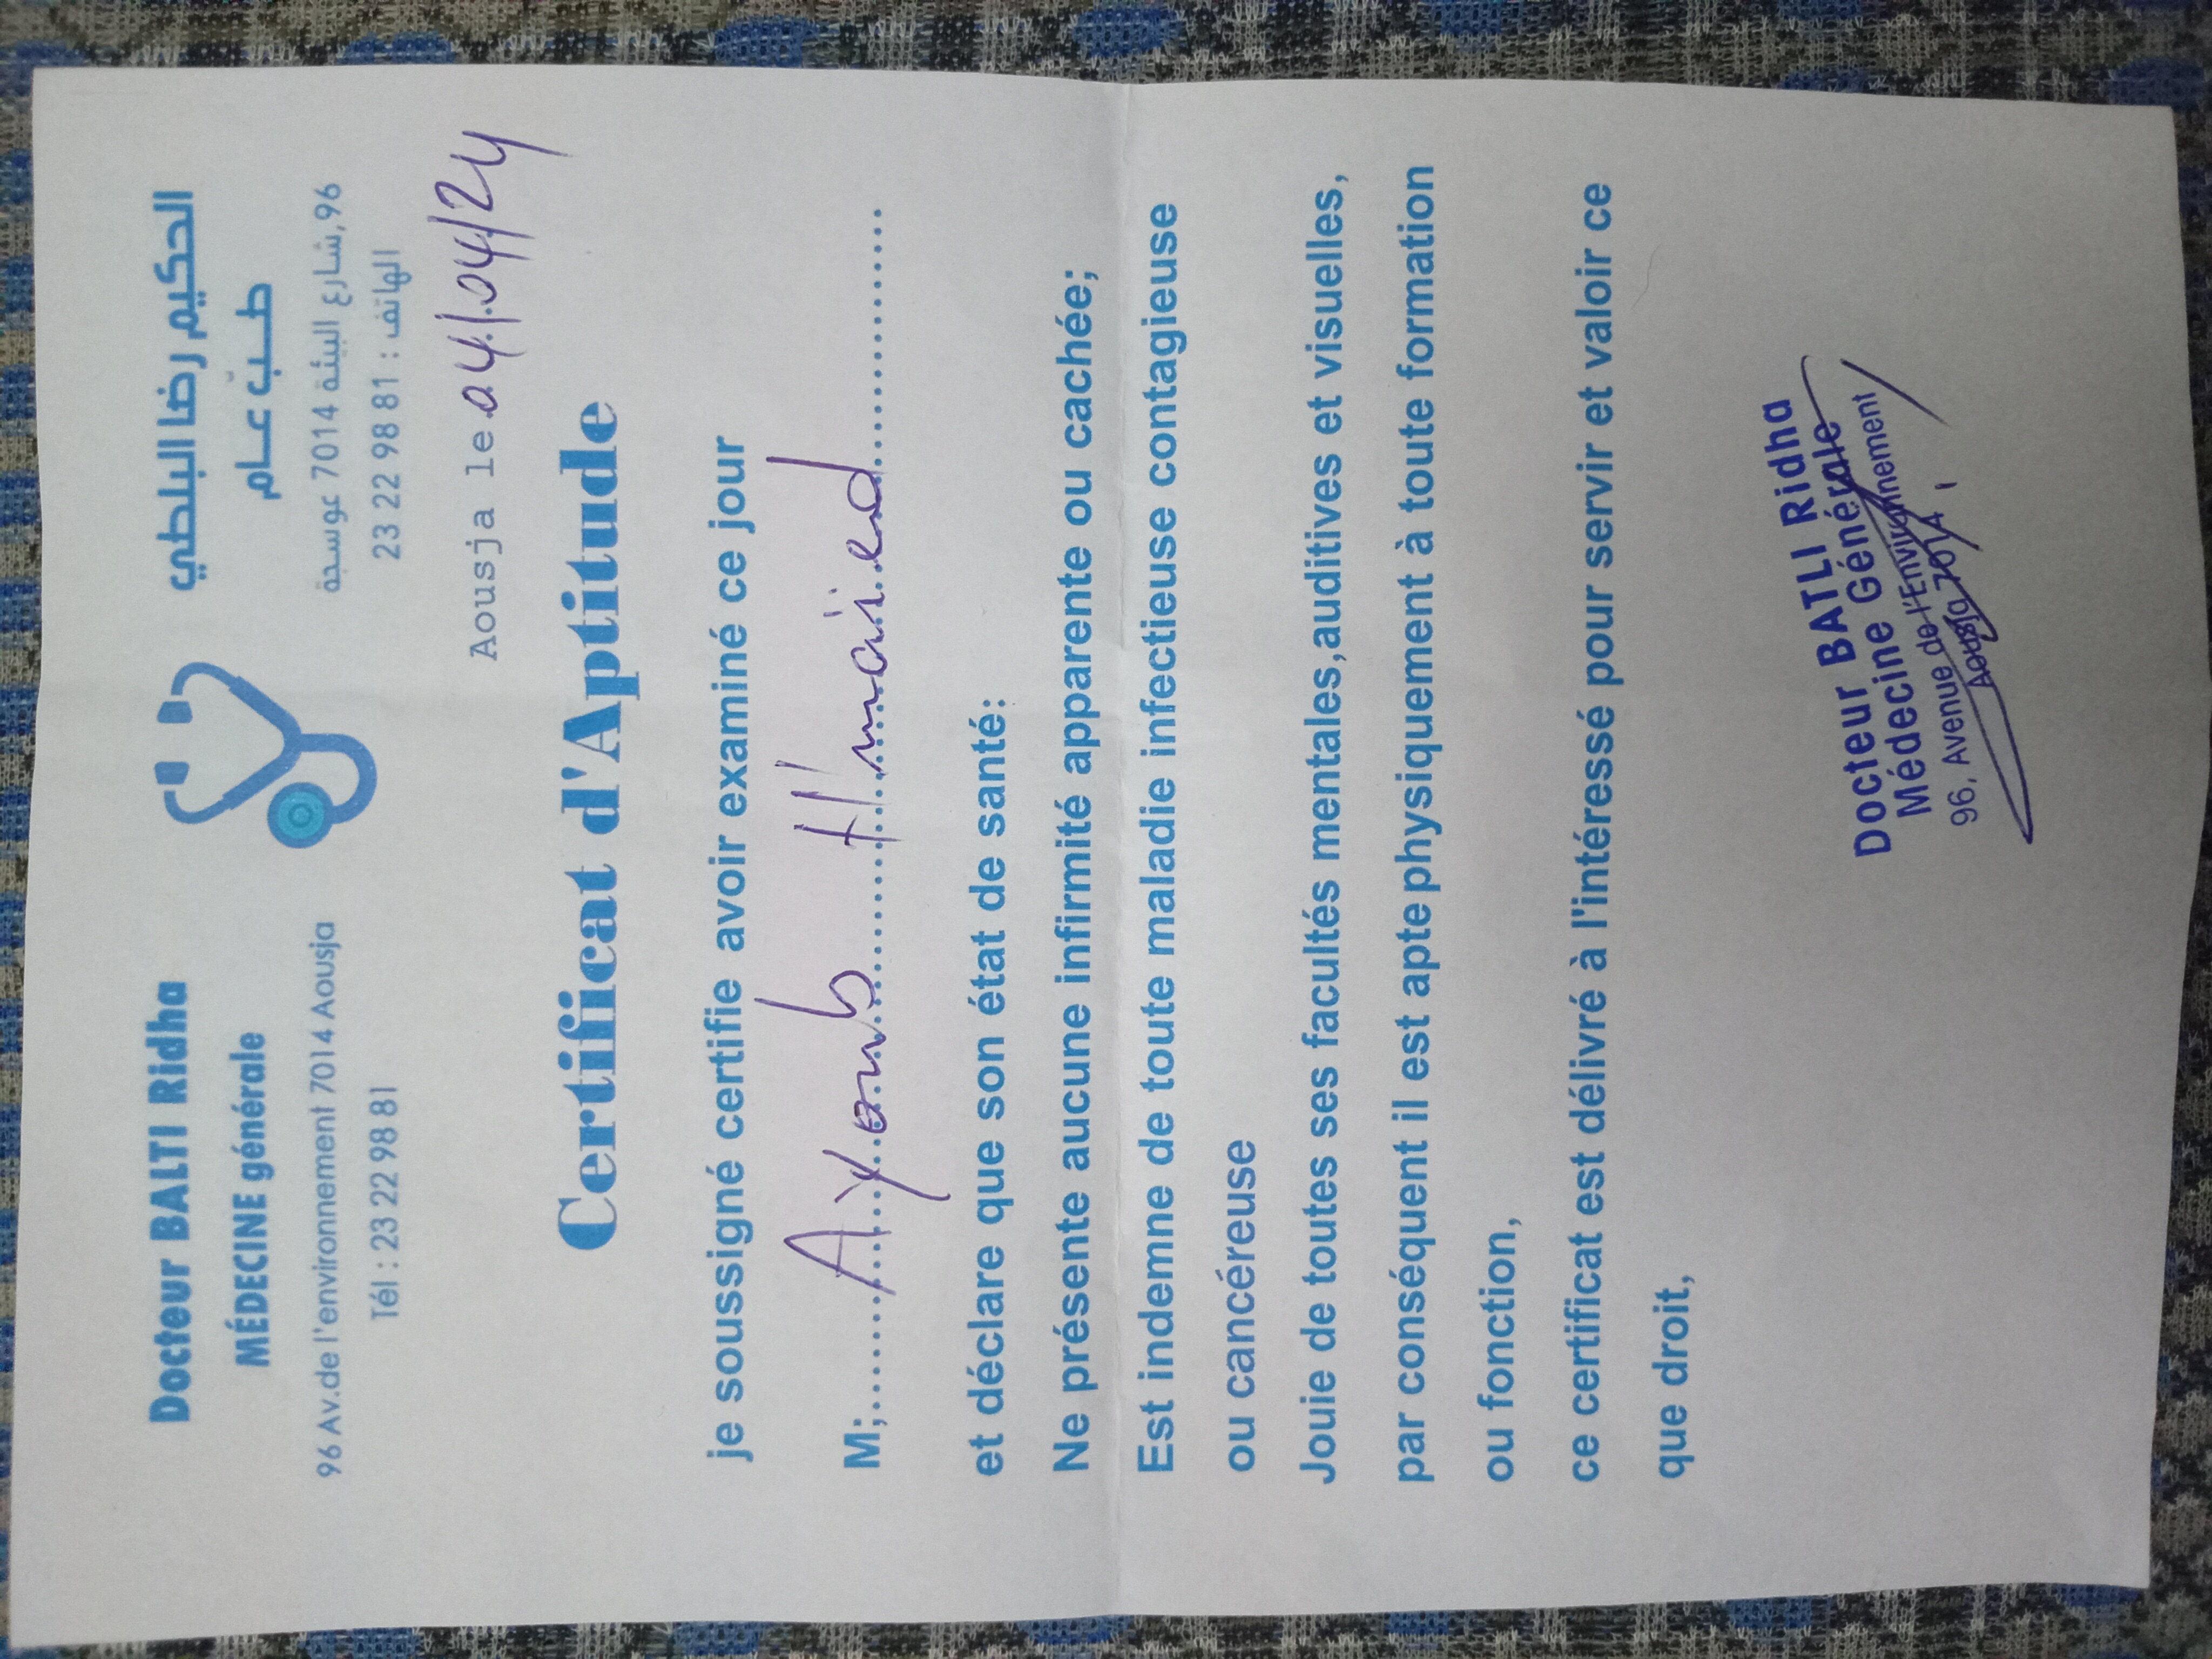 Docteur BALTI Ridha
MÉDECINE générale
96 Av.de l'environnement 7014 Aousja
Tél : 23 22 98 81
الحكيم رضا البلطي
طـبّ عـام
96,شارع البيئة 7014 عوسجة
الهاتف : 81 98 22 23
Aousja le 04/04/24
Certificat d'Aptitude
je soussigné certifie avoir examiné ce jour
M;....... Ayoub Hmaied..............
et déclare que son état de santé:
Ne présente aucune infirmité apparente ou cachée;
Est indemne de toute maladie infectieuse contagieuse
ou cancéreuse
Jouie de toutes ses facultés mentales,auditives et visuelles,
par conséquent il est apte physiquement à toute formation
ou fonction,
ce certificat est délivré à l'intéressé pour servir et valoir ce
que droit,
Docteur BATLI Ridha
Médecine Générale
96, Avenue de l'Environnement
Aousja 7014